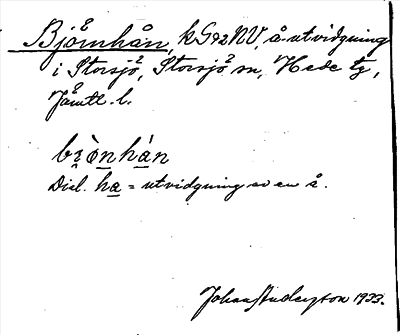 Björnhån, kG92NV, å-utvidgning
i Storsjö, Storsjö sn, Hede tg,
Jämtl. l.
bı̣ò̱nhà̱n
Dial. ha̱ = utvidgning av en å.
Johan Anderzson 1933.